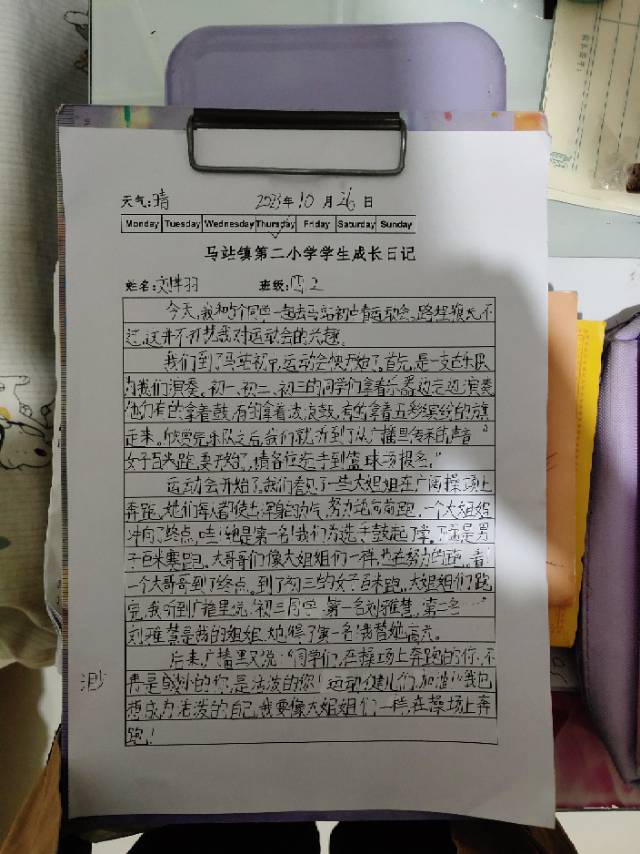 天气:晴 2023年10月26日
Monday Tuesday Wednesday Thursday Friday Saturday Sunday
马站镇第二小学学生成长日记
姓名:刘 羽 班级:四2
今天,我和5个同学一起去马站初中看运动会。路程很长,不
过,这并不打扰我对运动会的兴趣。
我们到了马站初中,运动会快开始了。首先,是一支古乐队
为我们演奏。初一、初二、初三的同学们拿着乐器边走边演奏
他们有的拿着鼓,有的拿着 鼓,有的拿着五彩缤纷的旗
走来。欣赏完乐队之后,我们就听到了从广播里传来的声音“
女子百米跑,要开始了,请各位选手到篮球场报名。”
运动会开始了。我们看见了一些大姐姐在广阔操场上
奔跑。她们每人都使出浑身的力气,努力地向前跑,一个大姐姐
冲向了终点,哇!她是第一名!我们为选手鼓起了掌。下面是男
子百米赛跑。大哥哥们像大姐姐们一样,也在努力的跑,看!
一个大哥哥到了终点。到了初三的女子百米跑。大姐姐们跑
完,我听到广播里说:“初三同学,第一名刘雅慧,第二名……”
刘雅慧是我的姐姐,她得了第一名!我替她高兴。
后来,广播里又说:“同学们,在操场上奔跑的你,不
再是 小的你,是活泼的你!运动健儿们,加油!”我也
渺
想成为活泼的自己,我要像大姐姐们一样,在操场上奔
跑!